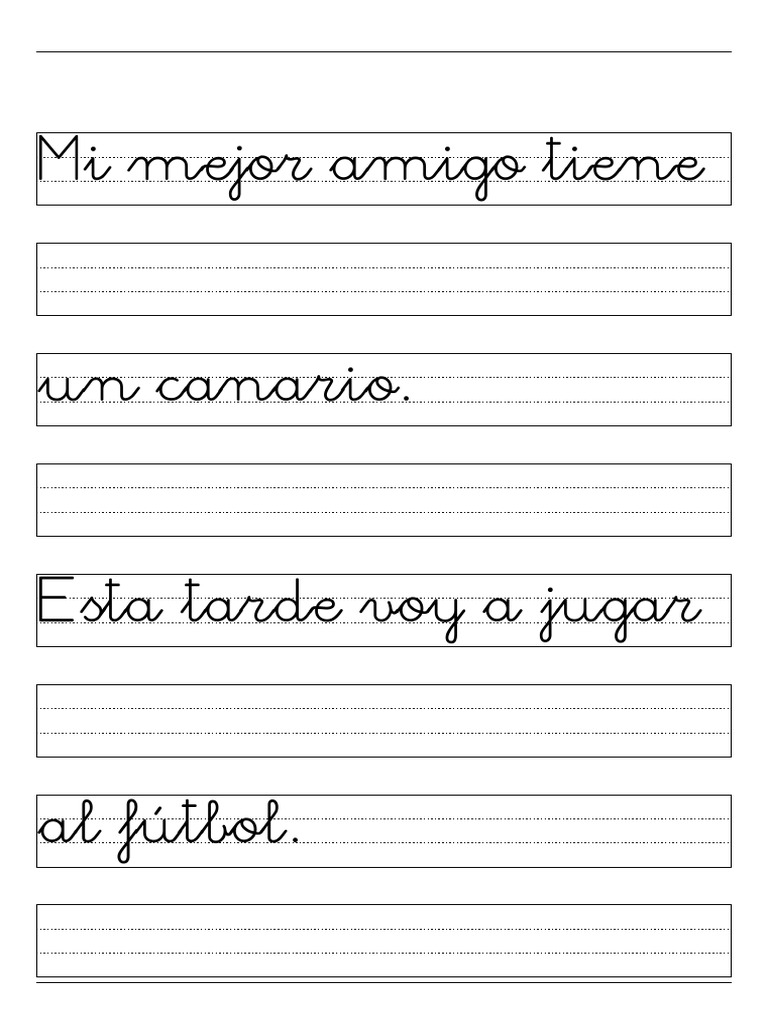 Mi mejor amigo tiene
un canario.
Esta tarde voy a jugar
al fútbol.